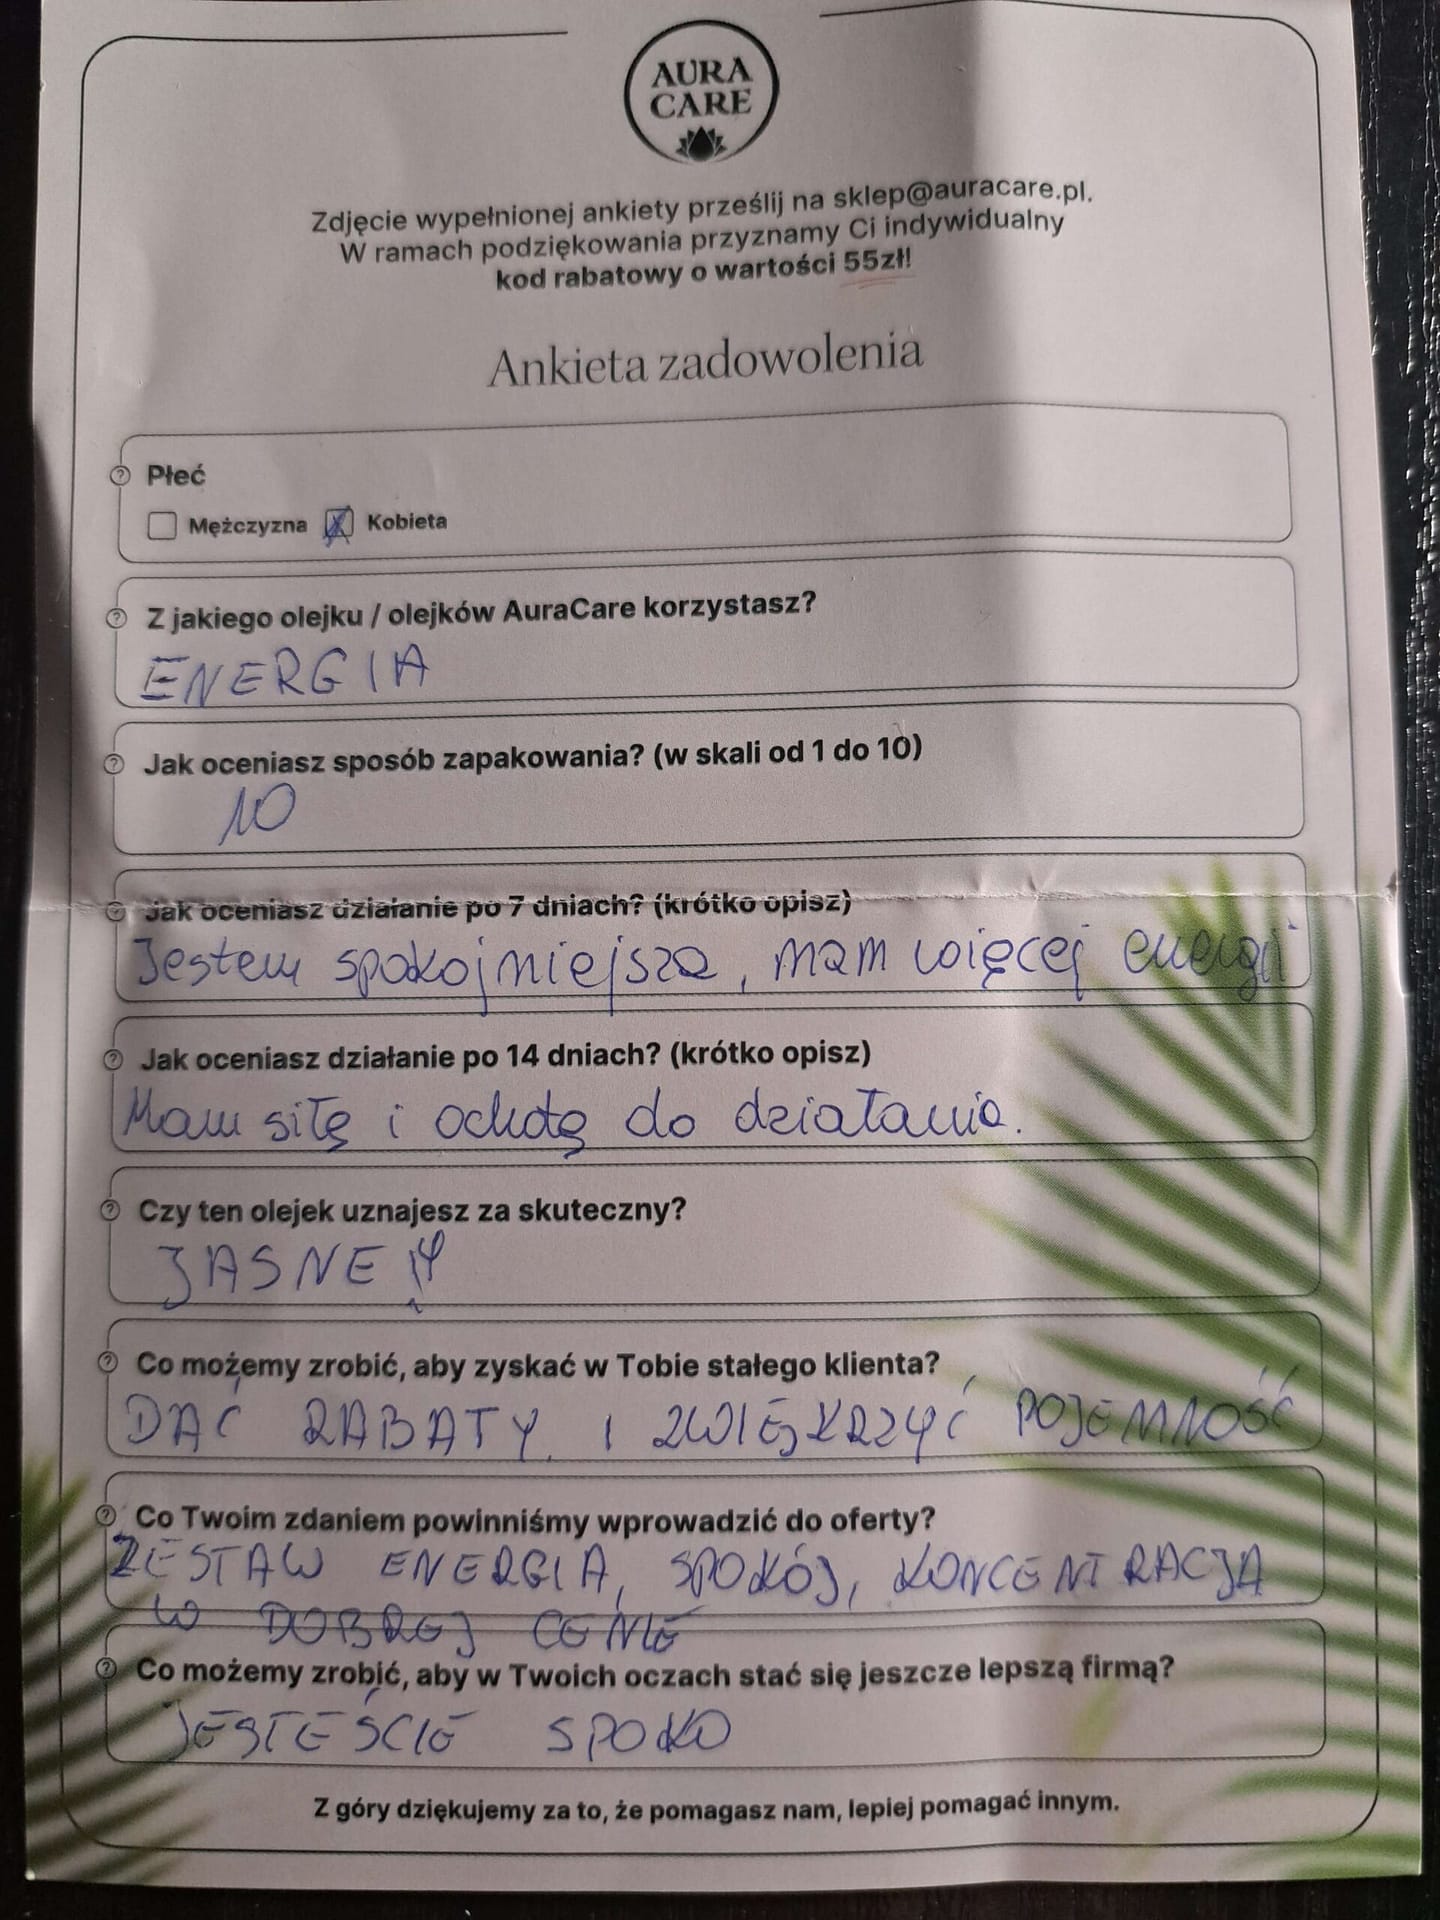 AURA
CARE
Zdjęcie wypełnionej ankiety prześlij na sklep@auracare.pl.
W ramach podziękowania przyznamy Ci indywidualny
kod rabatowy o wartości 55zł!
Ankieta zadowolenia
Płeć
Mężczyzna Kobieta
Z jakiego olejku / olejków AuraCare korzystasz?
ENERGIA
Jak oceniasz sposób zapakowania? (w skali od 1 do 10)
10
Jak oceniasz działanie po 7 dniach? (krótko opisz)
Jestem spokojniejsza, mam więcej energii
Jak oceniasz działanie po 14 dniach? (krótko opisz)
Mam siłę i ochotę do działania.
Czy ten olejek uznajesz za skuteczny?
JASNE!
Co możemy zrobić, aby zyskać w Tobie stałego klienta?
DAĆ RABATY I ZWIĘKRZYĆ POJEMNOŚĆ
Co Twoim zdaniem powinniśmy wprowadzić do oferty?
ZESTAW ENERGIA, SPOKÓJ, KONCENTRACJA
W DOBREJ CENIE
Co możemy zrobić, aby w Twoich oczach stać się jeszcze lepszą firmą?
JESTEŚCIE SPOKO
Z góry dziękujemy za to, że pomagasz nam, lepiej pomagać innym.